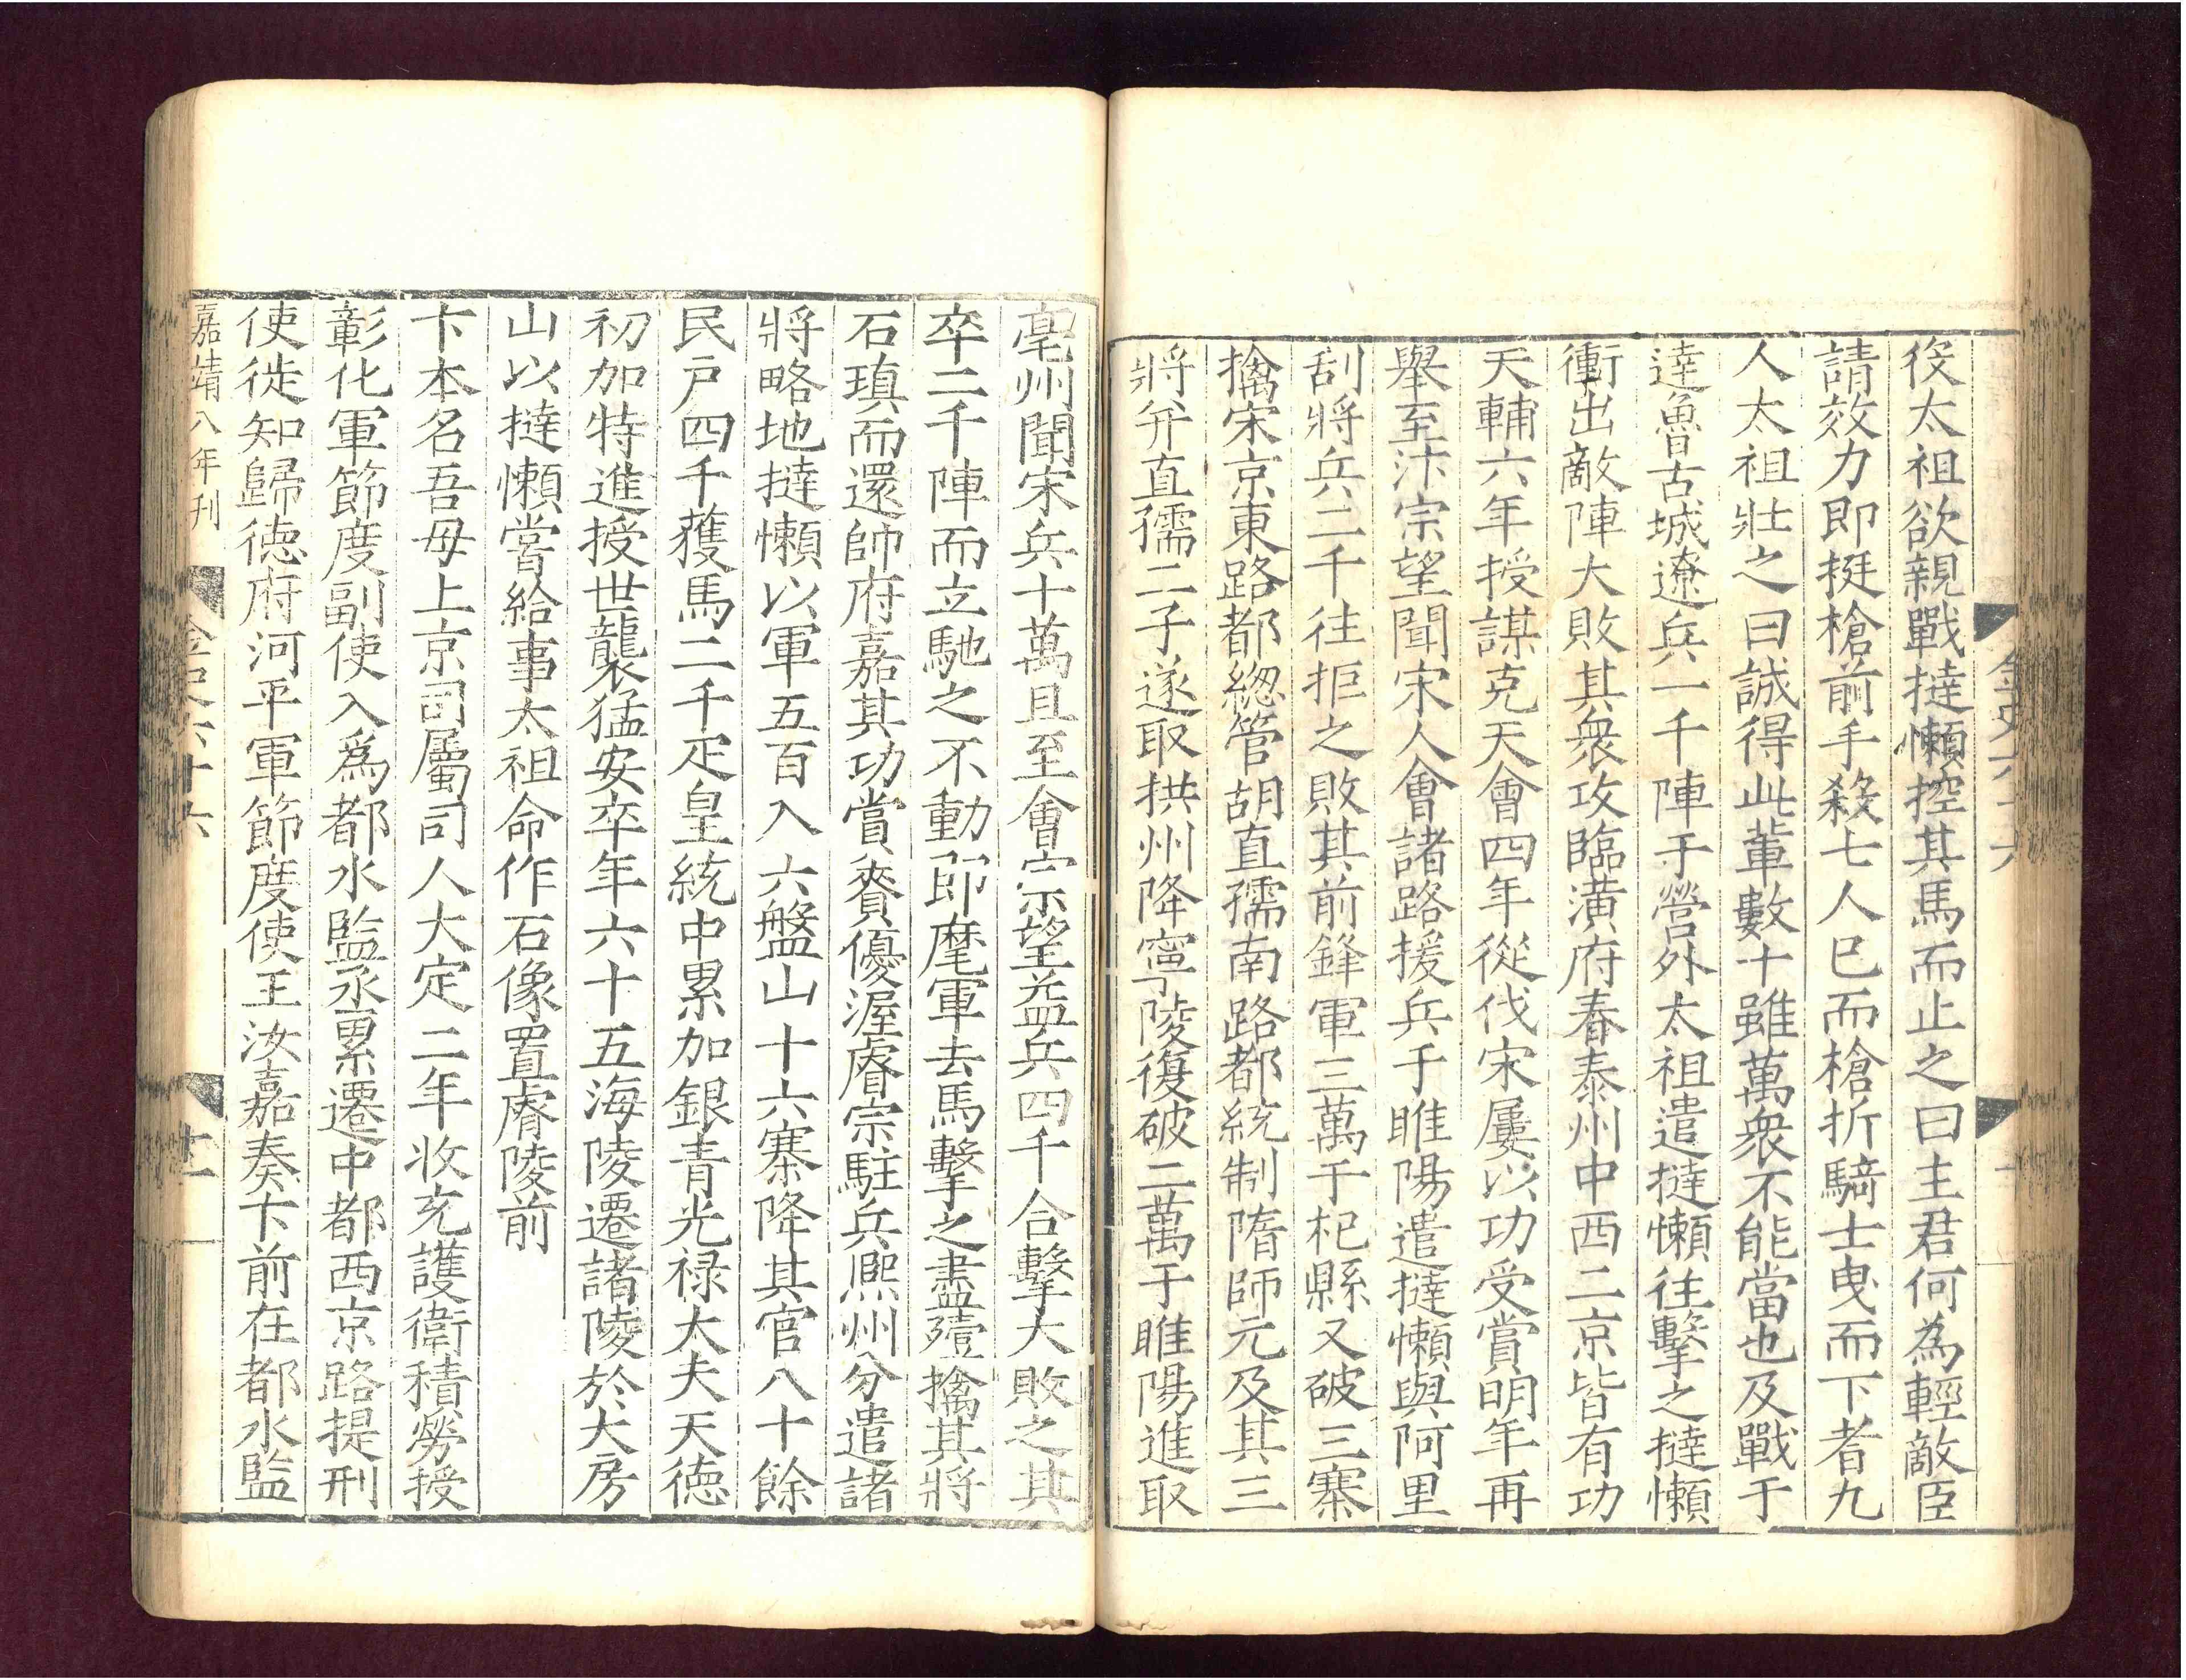 役太祖欲親戰撻懶控其馬而止之曰主君何為輕敵臣
請效力即挺槍前手殺七人已而槍折騎士曳而下者九
人太祖壯之曰誠得此輩數十雖萬衆不能當也及戰于
達魯古城遼兵一千陣于營外太祖遣撻懶往擊之撻懶
衝出敵陣大敗其衆攻臨潢府春泰州中西二京皆有功
天輔六年授謀克天會四年從伐宋屢以功受賞明年再
舉至汴宗望聞宋人會諸路援兵于睢陽遣撻懶與阿里
刮將兵二千往拒之敗其前鋒軍三萬于杞縣又破三寨
擒宋京東路都緫管胡直孺南路都統制隋師元及其三
將并直孺二子遂取拱州降寧陵復破二萬于睢陽進取
亳州聞宋兵十萬且至會宗望益兵四千合擊大敗之其
卒二千陣而立馳之不動即麾軍去馬擊之盡殪擒其將
石瑱而還帥府嘉其功賞賚優渥睿宗駐兵熈州分遣諸
將略地撻懶以軍五百入六盤山十六寨降其官八十餘
民戶四千獲馬二千疋皇統中累加銀青光禄大夫天德
初加特進授世襲猛安卒年六十五海陵遷諸陵於大房
山以撻懶嘗給事太祖命作石像置睿陵前
卞本名吾母上京司屬司人大定二年收充護衛積勞授
彰化軍節度副使入爲都水監丞累遷中都西京路提刑
使徙知歸德府河平軍節度使王汝嘉奏卞前在都水監
嘉靖八年刊
金史六十六
十一